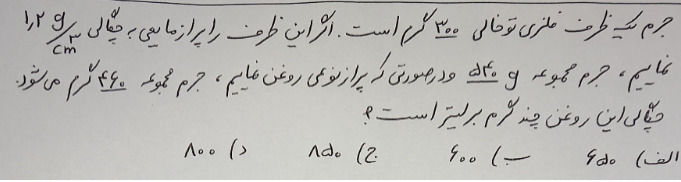 جرم یک ظرف فلزی توخالی ۳۰۰ گرم است. اگر این ظرف را پر از مایعی به چگالی ۱٫۲ g/cm³
نماییم، جرم مجموعه ۵۴۰ g و در صورتی که پر از نوعی روغن نماییم، جرم مجموعه ۴۶۰ گرم می‌شود.
چگالی این روغن چند گرم بر لیتر است؟
الف) ۶۵۰ ب) ۶۰۰ ج) ۸۵۰ د) ۸۰۰